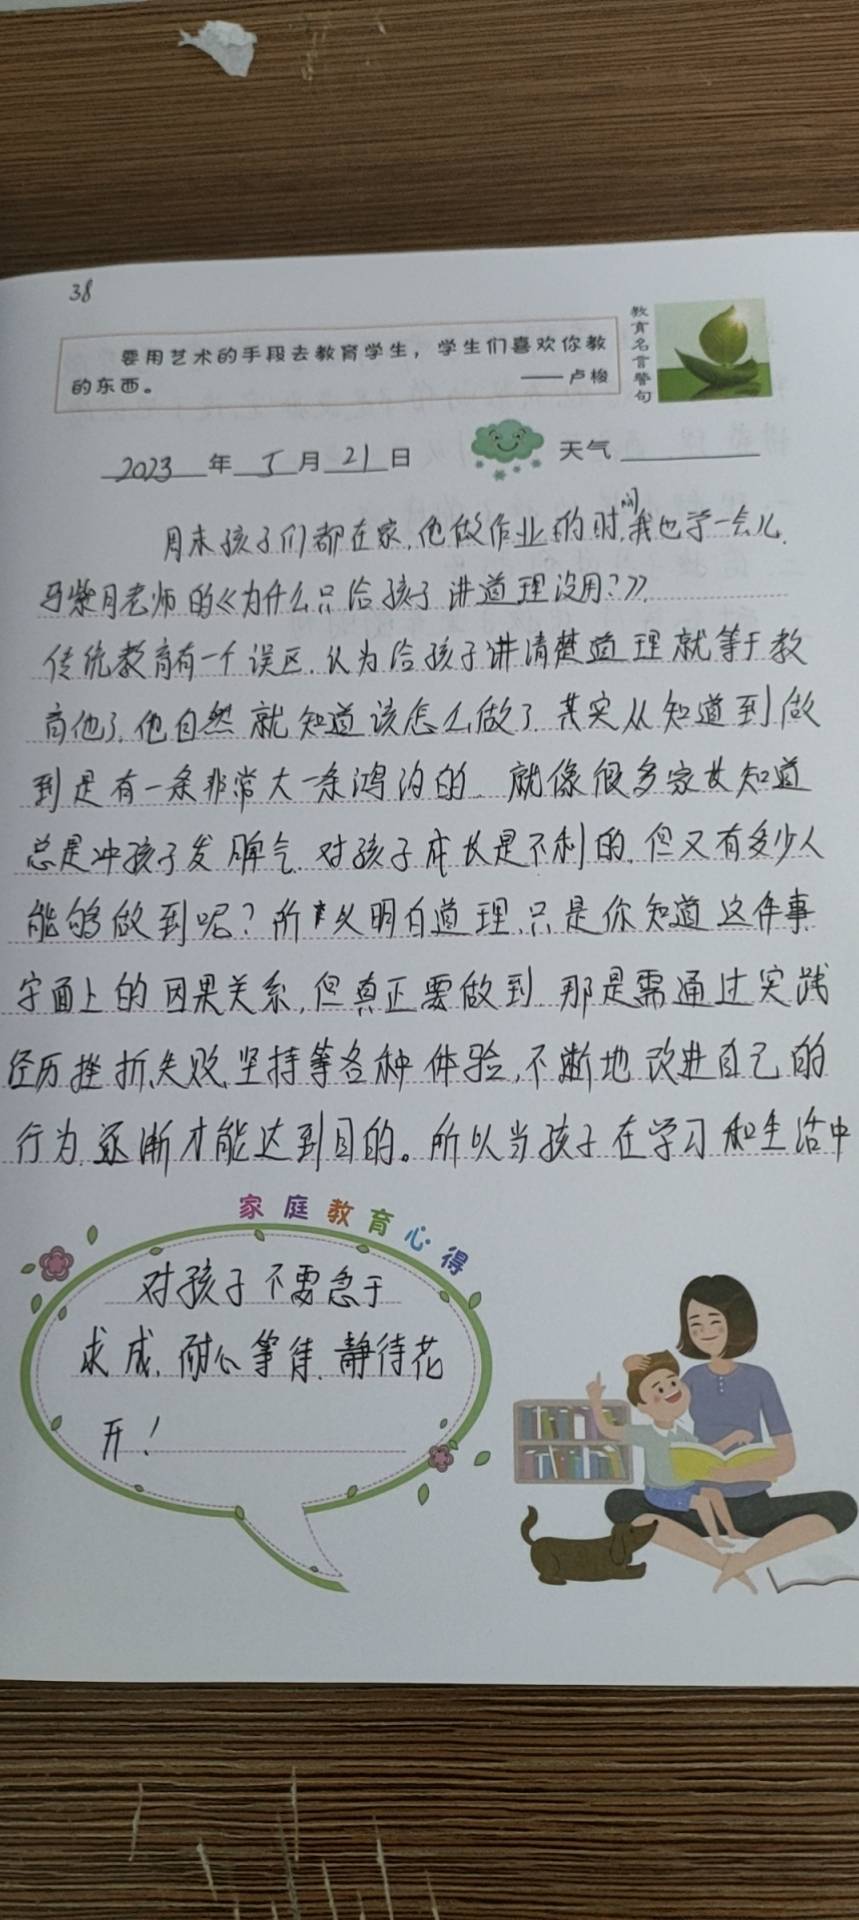 38
要用艺术的手段去教育学生，学生们喜欢你教
的东西。
——卢梭
教育名言警句
2023年5月21日 天气
月末孩子们都在家,他做作业的时间,我也学一会儿.
老师的《为什么只给孩子讲道理没用?》.
传统教育有一个误区.认为给孩子讲清楚道理就等于教
育他了.他自然就知道该怎么做了.其实从知道到做
到是有一条非常大一条鸿沟的.就像很多家长知道
总是冲孩子发脾气.对孩子成长是不利的.但又有多少人
能够做到呢?所以明白道理.只是你知道这件事
字面上的因果关系,但真正要做到.那是需通过实践
经历挫折失败坚持等各种体验,不断地改进自己的
行为.逐渐才能达到目的。所以当孩子在学习和生活中
家庭教育心得
对孩子不要急于
求成,耐心等待.静待花
开!